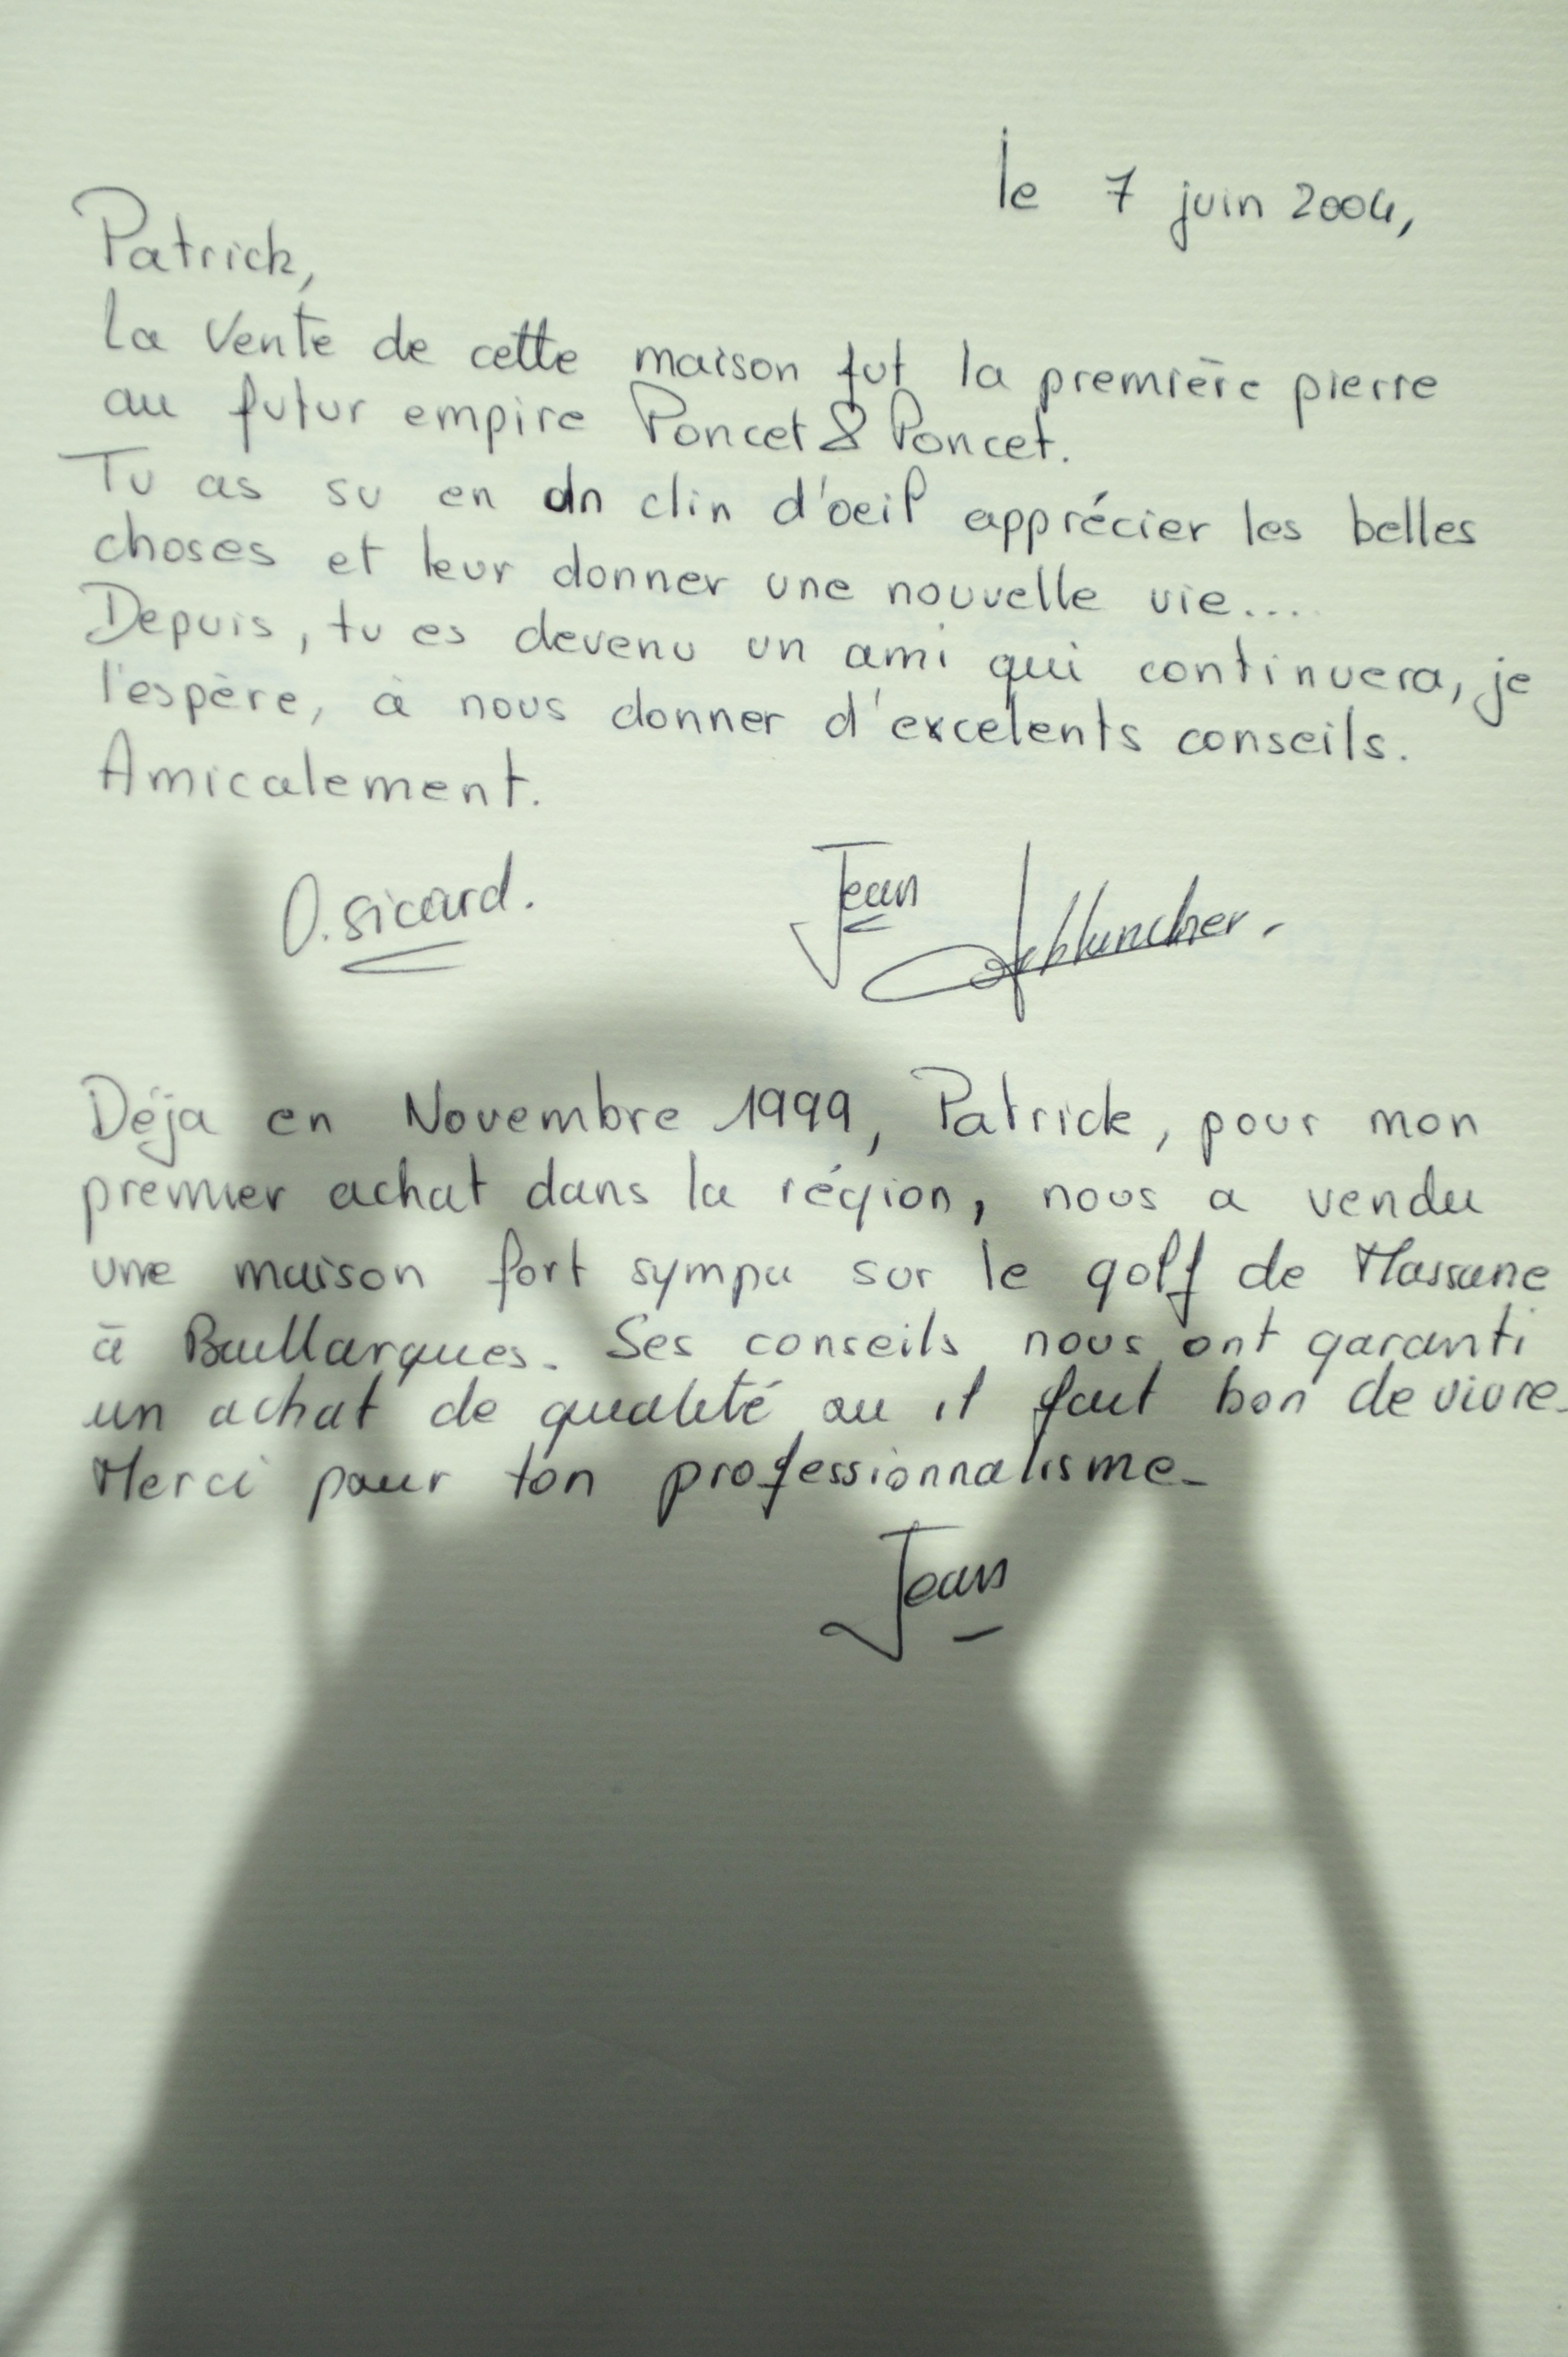 le 7 juin 2004,
Patrick,
La Vente de cette maison fut la première pierre
au futur empire Poncet & Poncet.
Tu as su en un clin d'oeil apprécier les belles
choses et leur donner une nouvelle vie....
Depuis, tu es devenu un ami qui continuera, je
l'espère, à nous donner d'excelents conseils.
Amicalement.
O. Sicard. Jean
Déja en Novembre 1999, Patrick, pour mon
premier achat dans la région, nous a vendu
une maison fort sympa sur le golf de Massane
à Baillargues. Ses conseils nous ont garanti
un achat de qualité ou il fait bon de vivre.
Merci pour ton professionnalisme-
Jean